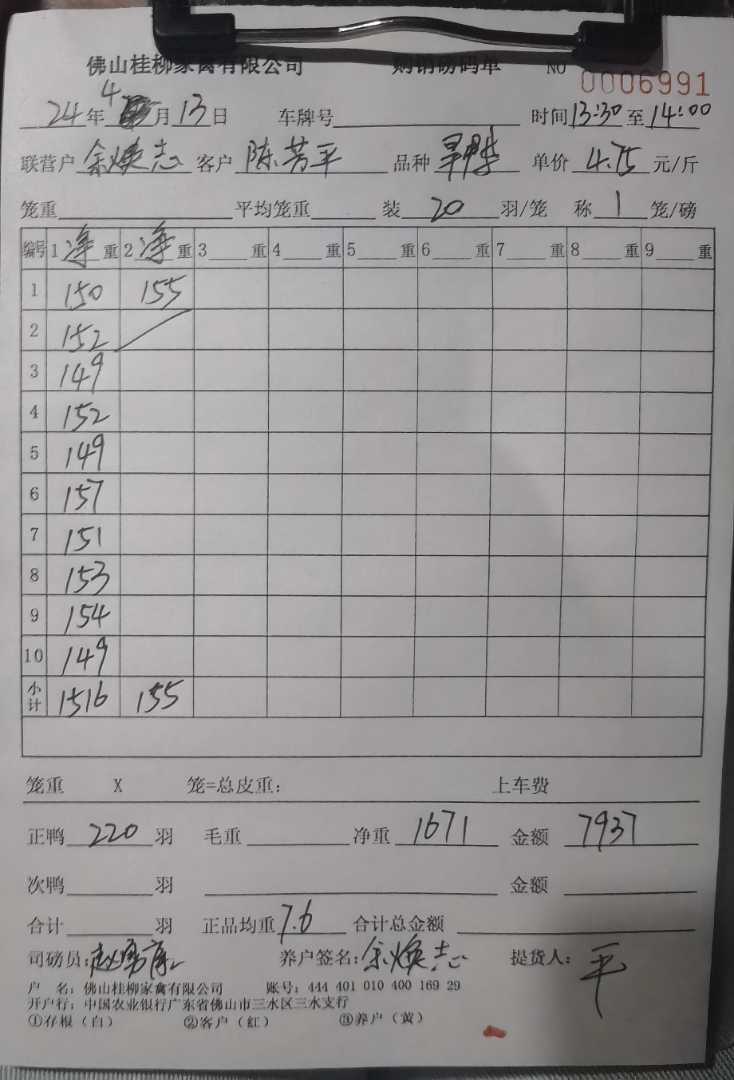 佛山桂柳家禽有限公司 购销磅码单 NO 0006991
24年4月13日 车牌号 时间13:30至14:00
联营户余焕志 客户陈芳平 品种旱鸭 单价4.75元/斤
笼重 平均笼重 装20羽/笼 称1笼/磅
编号 1净重 2净重 3重 4重 5重 6重 7重 8重 9重
1 150 155
2 152
3 149
4 152
5 149
6 157
7 151
8 153
9 154
10 149
小计 1516 155
笼重 X 笼=总皮重: 上车费
正鸭220羽 毛重 净重1671 金额7937
次鸭 羽 金额
合计 羽 正品均重7.6 合计总金额
司磅员: 养户签名:余焕志 提货人:平
户 名: 佛山桂柳家禽有限公司 账号: 444 401 010 400 169 29
开户行: 中国农业银行广东省佛山市三水区三水支行
①存根(白) ②客户(红) ③养户(黄)